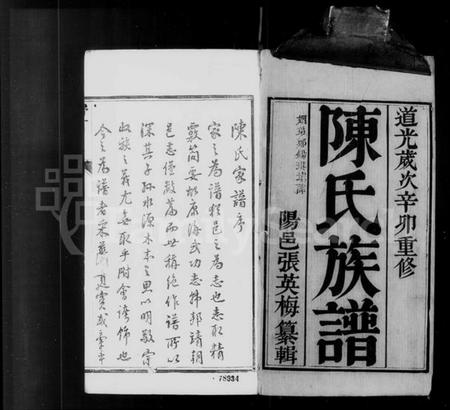 道光歲次辛卯重修
陳氏族譜
陽邑張英梅纂輯
陳氏家譜序
家之為譜猶邑之為志也志取精
嚴簡要如康海武功志韓邦靖朝
邑志僅數篇而世稱絕作譜所以
深其子孫水源木本之思以明敬宗
收族之義尤無取乎附會誇飾也
今之為譜者
78934